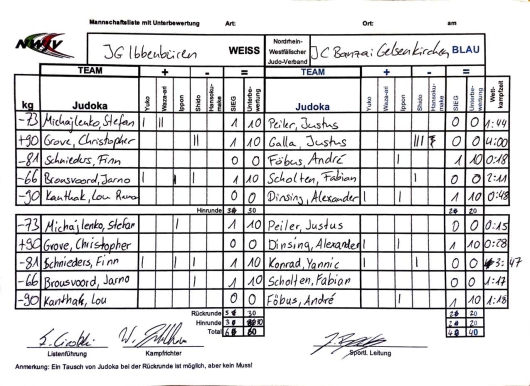 Mannschaftsliste mit Unterbewertung Art: Ort: am
NWJV JG Ibbenbüren WEISS Nordrhein-Westfälischer Judo-Verband JC Banzai Gelsenkirchen BLAU
TEAM + - = TEAM + - =
kg Judoka Yuko Waza-ari Ippon Shido Hansoku-make SIEG Unterbewertung Judoka Yuko Waza-ari Ippon Shido Hansoku-make SIEG Unterbewertung Wettkampfzeit
-73 Michajlenko, Stefan I II 1 10 Peiler, Justus 0 0 1:44
+90 Grove, Christopher II 1 10 Galla, Justus III 0 0 4:00
-81 Schnieders, Finn 0 0 Föbus, André I 1 10 0:18
-66 Bronsvoord, Jarno I I I 1 10 Scholten, Fabian 0 0 2:11
-90 Kanthak, Lou 0 0 Dinsing, Alexander I I 1 10 0:48
Hinrunde 3 30 2 20
-73 Michajlenko, Stefan I 1 10 Peiler, Justus 0 0 0:15
+90 Grove, Christopher 0 0 Dinsing, Alexander I I 1 10 0:28
-81 Schnieders, Finn I I I 1 10 Konrad, Yannic I 0 0 3:47
-66 Brousvoord, Jarno I 1 10 Scholten, Fabian 0 0 1:17
-90 Kanthak, Lou 0 0 Föbus, André I 1 10 1:18
Rückrunde 3 30 2 20
Hinrunde 3 30 2 20
Total 6 60 4 40
Listenführung Kampfrichter Sportl. Leitung
Anmerkung: Ein Tausch von Judoka bei der Rückrunde ist möglich, aber kein Muss!